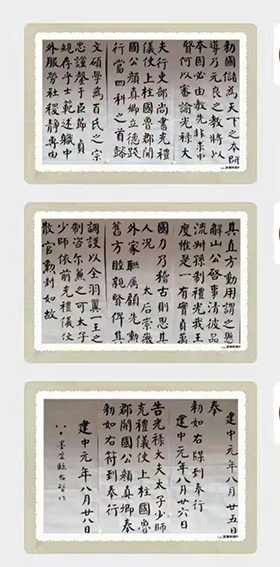 勅國儲為天下之本師
導乃元良之教將以
本固必由教先非求中
賢何以審諭光祿大
夫行吏部尚書充禮
儀使上柱國魯郡開
國公顏真卿立德踐
行當四科之首懿
文碩學為百氏之宗
忠讜罄於臣節貞
規存乎士範述職中
外服勞社稷靜專由
其直方動用謂之懸
解山公啓事清彼品
流叔孫制禮光我王
度惟是一有實貞萬
國力乃稽古則思其
人況 太后崇徽
外家聯屬顧先勳
舊方睦親賢俾其
調護以全羽翼一王之
制咨爾兼之可太子
少師依前充禮儀使
散官勳封如故
建中元年八月廿五日
奉
勅如右牒到奉行
建中元年八月廿六日
告光祿大夫太子少師
充禮儀使上柱國魯
郡開國公顏真卿奉
勅如右符到奉行
建中元年八月廿八日